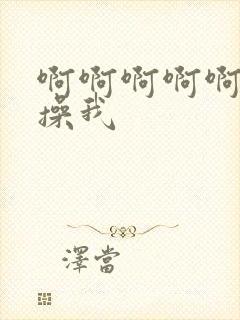 啊啊啊啊啊
操我
澤當